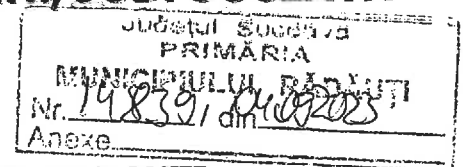 Județul Suceava
PRIMĂRIA
MUNICIPIULUI RĂDĂUȚI
Nr. 14839, din 04.092023
Anexe